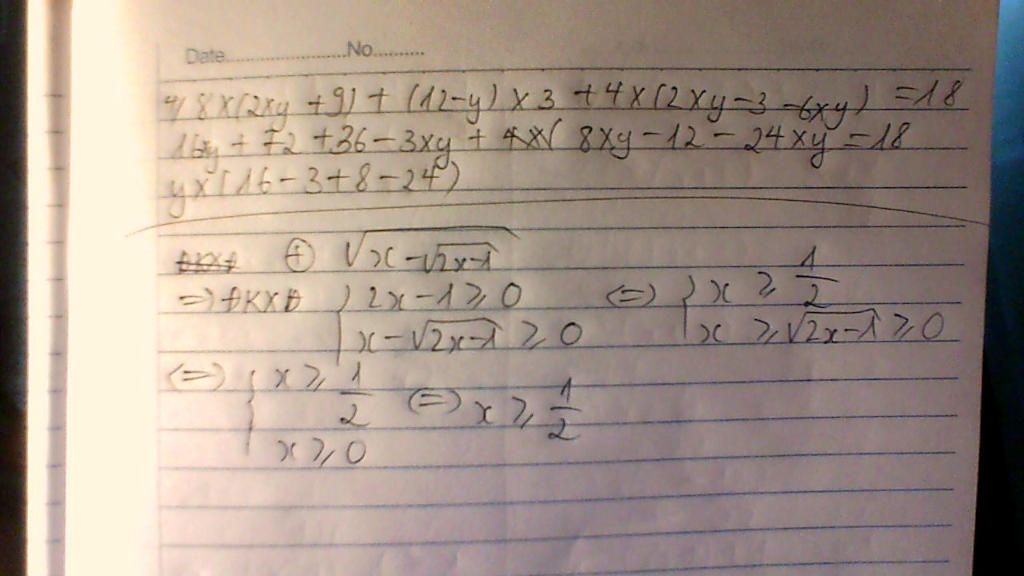 Date......................No..........
4) 8 x (2xy + 9) + (12 - y) x 3 + 4 x (2xy - 3 - 6xy) = 18
16xy + 72 + 36 - 3xy + 8xy - 12 - 24xy = 18
y x (16 - 3 + 8 - 24)
⊕ √(x - √(2x-1))
=> ĐKXĐ { 2x - 1 ≥ 0 <=> { x ≥ 1/2
x - √(2x-1) ≥ 0 x ≥ √(2x-1) ≥ 0
<=> { x ≥ 1/2 <=> x ≥ 1/2
x ≥ 0